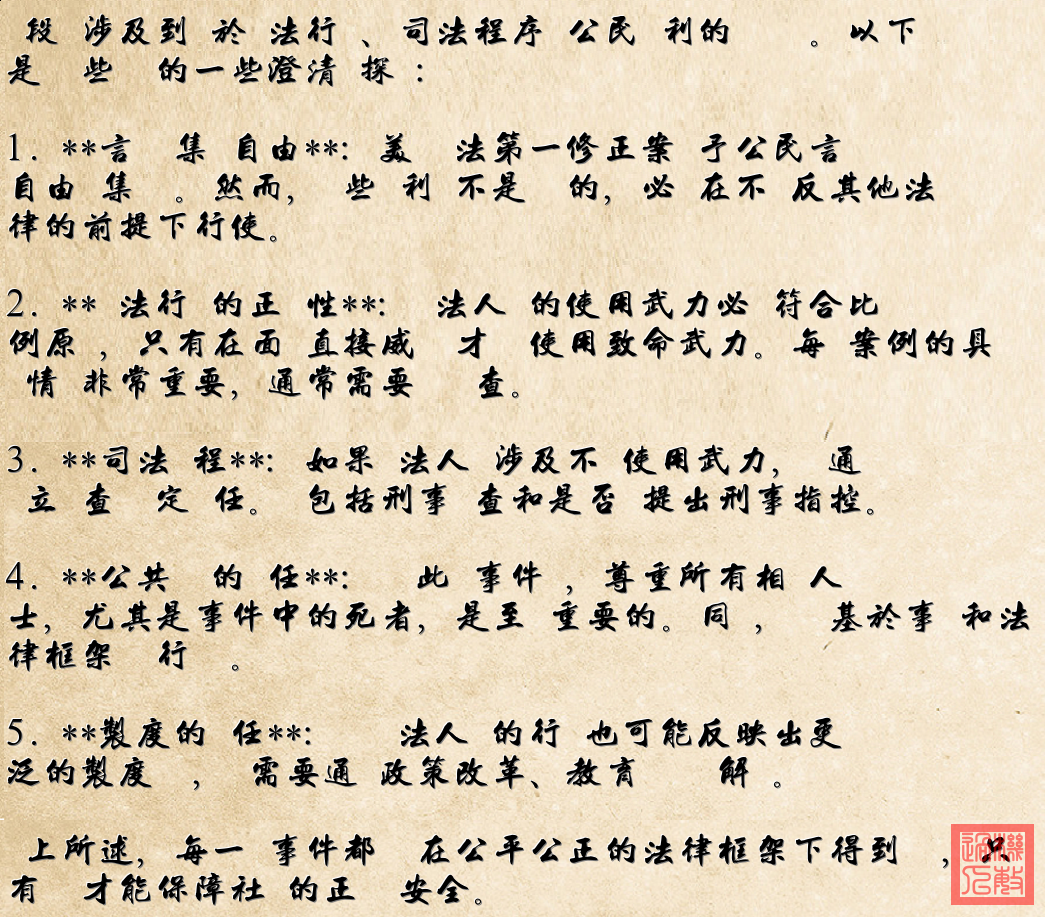 段 涉及到 於 法行 、司法程序 公民 利的 。以下
是 些 的一些澄清 探 :
1. **言 集 自由**: 美 法第一修正案 予公民言
自由 集 。然而, 些 利 不是 的,必 在不 反其他法
律的前提下行使。
2. ** 法行 的正 性**: 法人 的使用武力必 符合比
例原 ,只有在面 直接威 才 使用致命武力。每 案例的具
情 非常重要,通常需要 查。
3. **司法 程**: 如果 法人 涉及不 使用武力, 通
立 查 定 任。 包括刑事 查和是否 提出刑事指控。
4. **公共 的 任**: 此 事件 ,尊重所有相 人
士,尤其是事件中的死者,是至 重要的。同 , 基於事 和法
律框架 行 。
5. **製度的 任**: 法人 的行 也可能反映出更
泛的製度 , 需要通 政策改革、教育 解 。
上所述,每一 事件都 在公平公正的法律框架下得到 ,只
有 才能保障社 的正 安全。